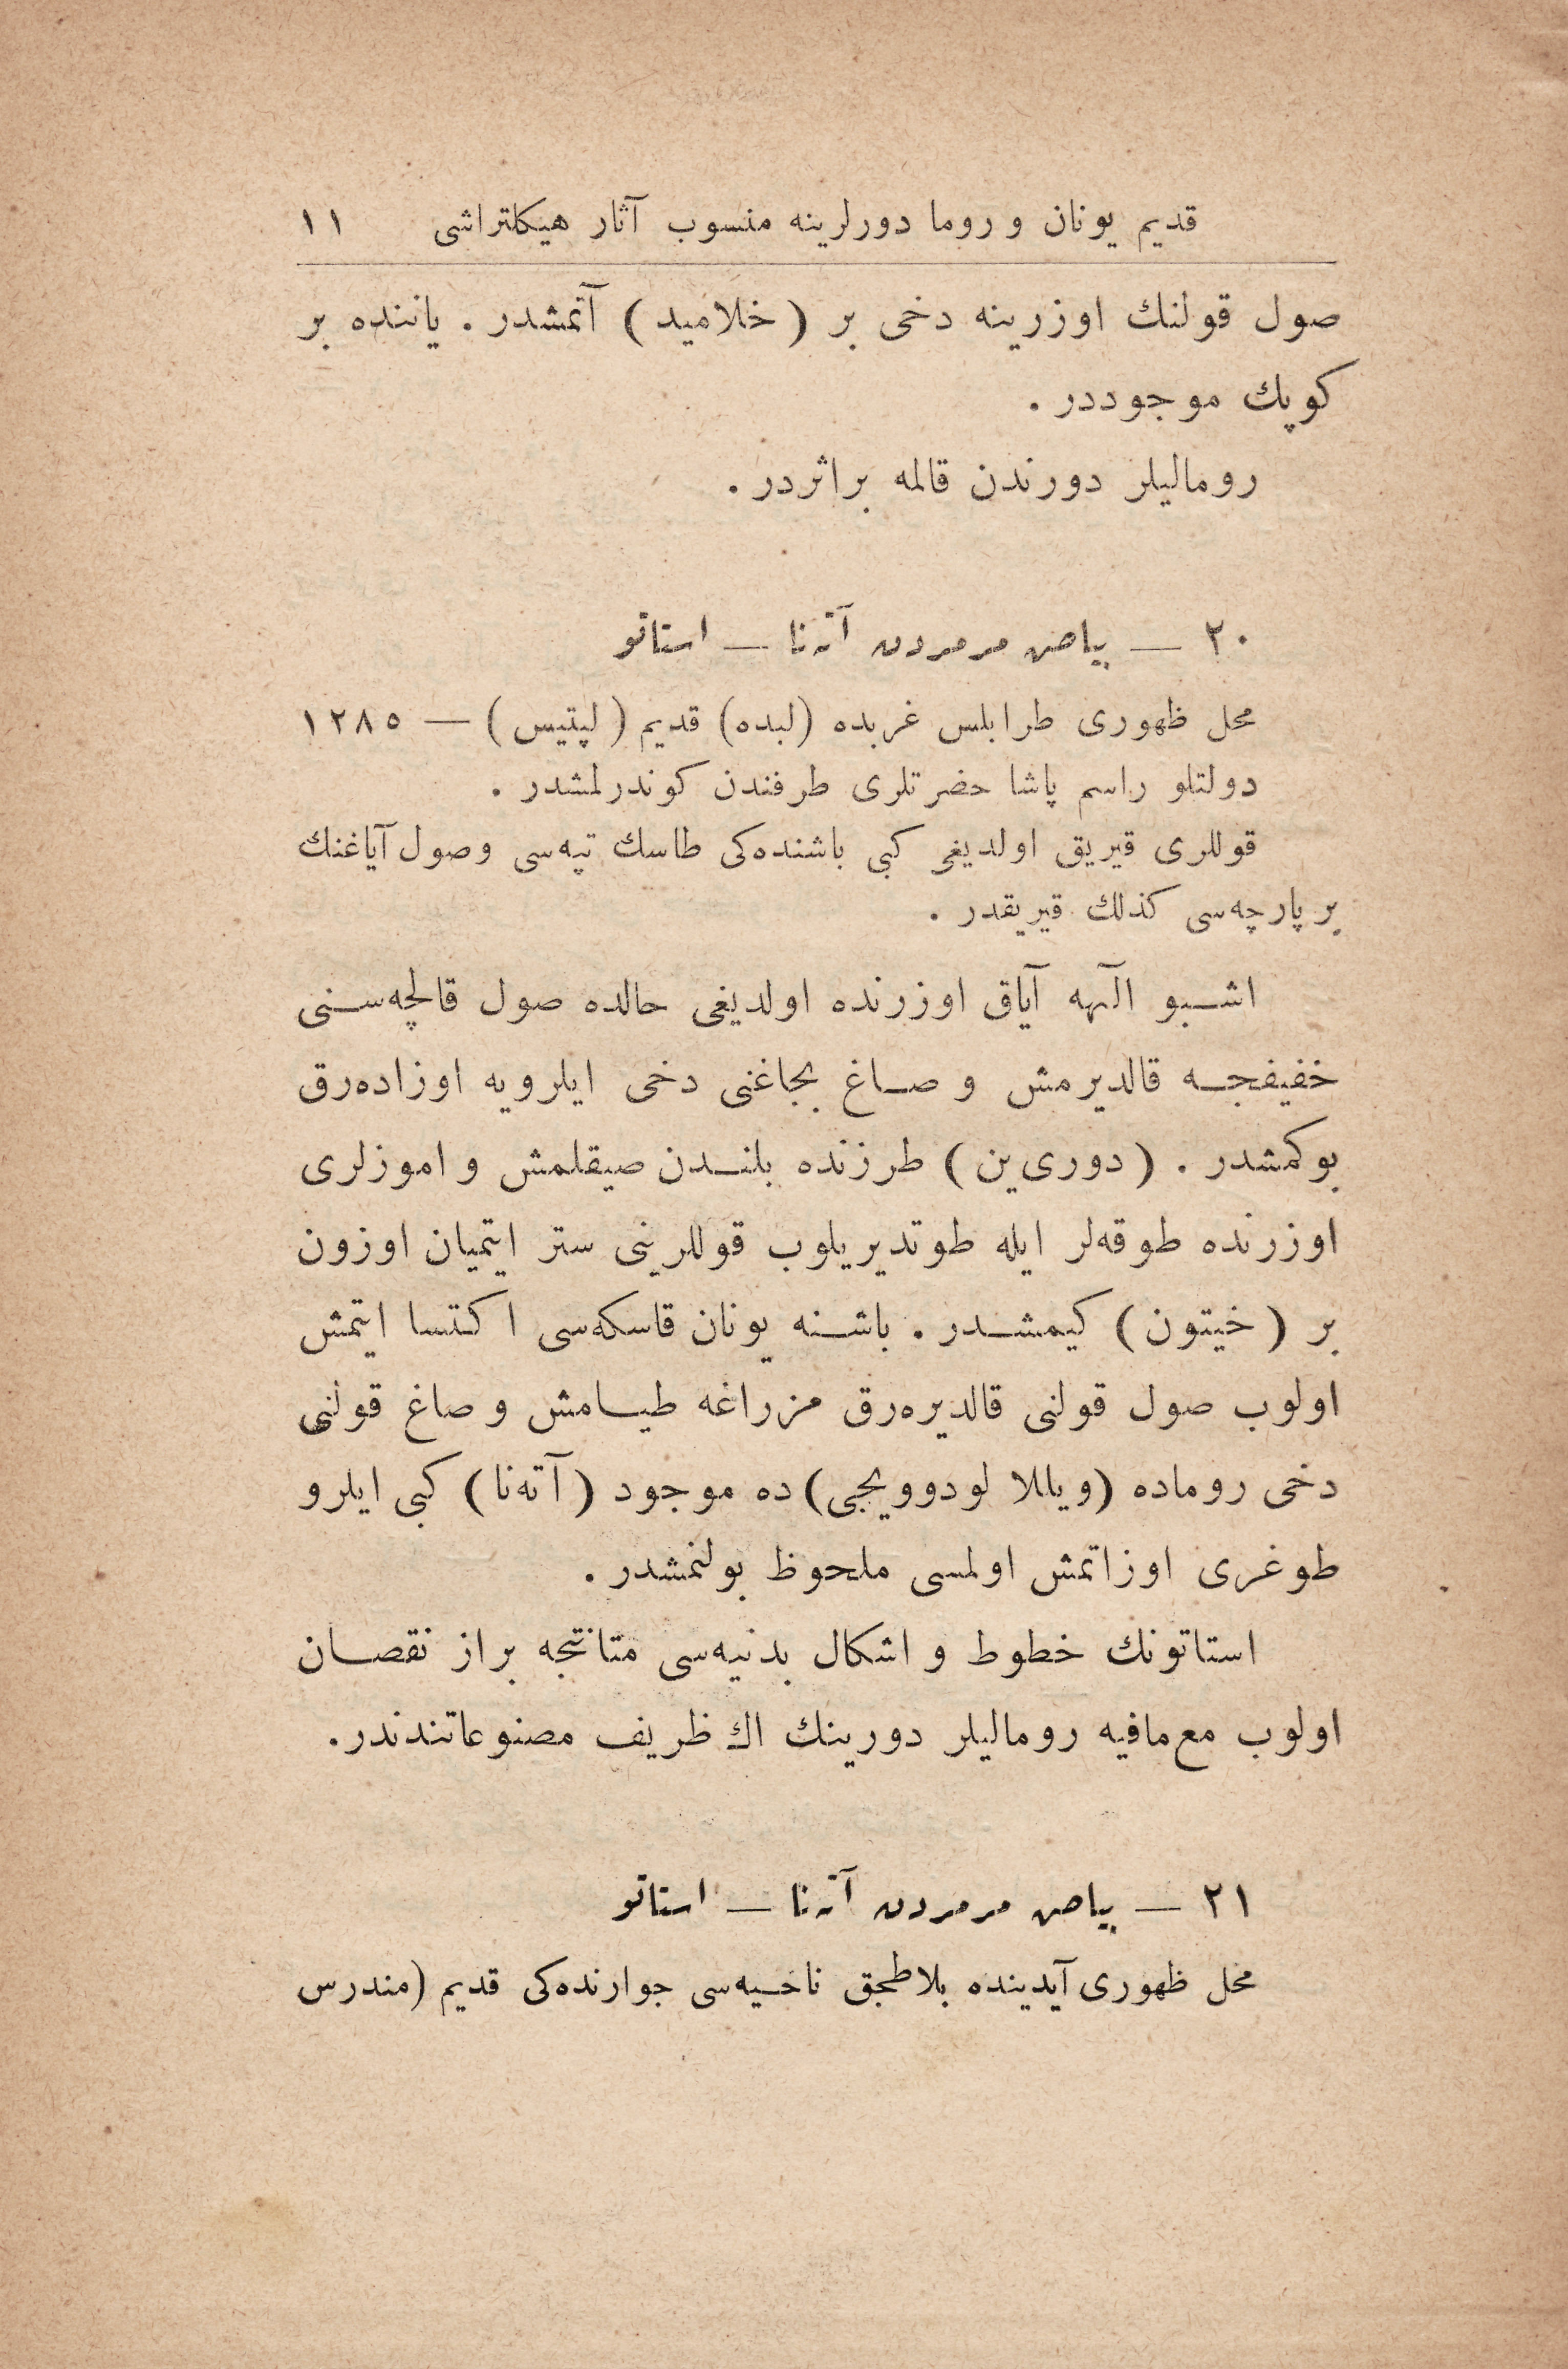 قديم يونان و روما دورلرينه منسوب آثار هيكلتراشى ١١
صول قولنك اوزرينه دخى بر ( خلاميد ) آتمشدر . ياننده بر
كوپك موجوددر .
روماليلر دورندن قالمه براثردر .
٢٠ — بياض مرمردن آتەنا — استاتو
محل ظهورى طرابلس غربده (لبده) قديم ( لپتيس ) — ١٢٨٥
دولتلو راسم پاشا حضرتلرى طرفندن كوندرلمشدر .
قوللرى قيريق اولديغى كبى باشنده‌كى طاسك تپه‌سى وصول آياغنك
بر پارچه‌سى كذلك قيريقدر .
اشبو آلهه آياق اوزرنده اولديغى حالده صول قالچه‌سنى
خفيفجه قالديرمش و صاغ بجاغنى دخى ايلرويه اوزاده‌رق
بوكمشدر . ( دورى‌ين ) طرزنده بلندن صيقلمش و اموزلرى
اوزرنده طوقه‌لر ايله طوتديريلوب قوللرينى ستر ايتميان اوزون
بر ( خيتون ) كيمشدر . باشنه يونان قاسكه‌سى اكتسا ايتمش
اولوب صول قولنى قالديره‌رق مزراغه طيامش و صاغ قولنى
دخى روماده (ويللا لودوويجى) ده موجود ( آته‌نا ) كبى ايلرو
طوغرى اوزاتمش اولمسى ملحوظ بولنمشدر .
استاتونك خطوط و اشكال بدنيه‌سى متانتجه براز نقصان
اولوب مع‌مافيه روماليلر دورينك اك ظريف مصنوعاتندندر.
٢١ — بياض مرمردن آتەنا — استاتو
محل ظهورى آيدينده بلاطجق ناحيه‌سى جوارنده‌كى قديم (مندرس